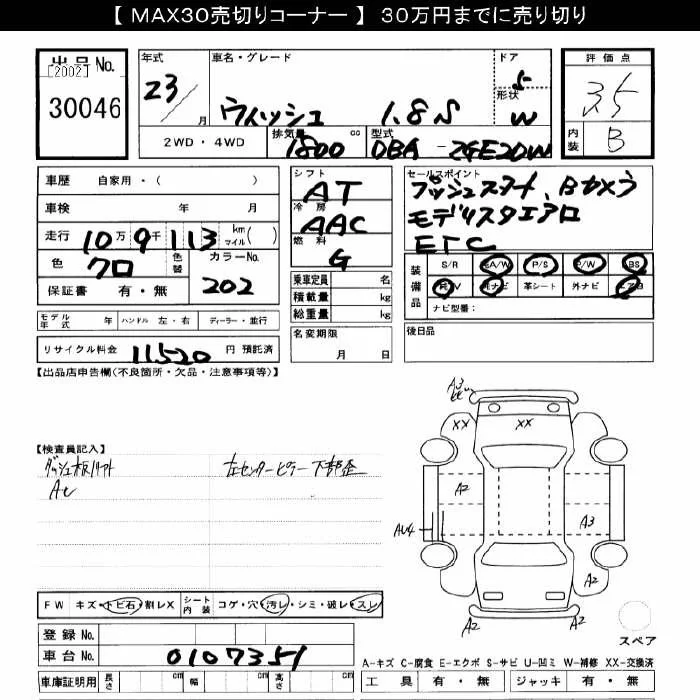 【 MAX30売切りコーナー 】 30万円までに売り切り
出品 No.
[2002]
30046
年式 23/ 月
車名・グレード ウィッシュ 1.8S
ドア 5
形状 W
2WD・4WD
排気量 1800 cc
型式 DBA - ZGE20W
評価点 3.5
内装 B
車歴 自家用・( )
車検 年 月
走行 10万 9千 113 km マイル( )
色 クロ 色替 カラーNo. 202
保証書 有・無
シフト AT
冷房 AAC
燃料 G
乗車定員 名
積載量 kg
総重量 kg
セールスポイント
プッシュスタート、Bカメラ
モデリスタエアロ
ETC
装備品
S/R A/W P/S P/W BS
TV 純ナビ 革シート 外ナビ エアB
ナビ型番:
モデル年式 年 ハンドル 左・右 ディーラー・並行
リサイクル料金 11,520 円 預託済
名変期限 月 日
後日品
【出品店申告欄(不良箇所・欠品・注意事項等)】
【検査員記入】
ダッシュ板リフト 左センターピラー下部歪
A3
XX XX
A2
AU4
A3
A2
A2 A2
FW キズ・トビ石・割レX シート内装 コゲ・穴・汚レ・シミ・破レ・スレ
スペア
登録 No.
車台 No. 0107351
A-キズ C-腐食 E-エクボ S-サビ U-凹ミ W-補修 XX-交換済
車庫証明用 長さ cm 幅 cm 高さ cm
工具 有・無 ジャッキ 有・無